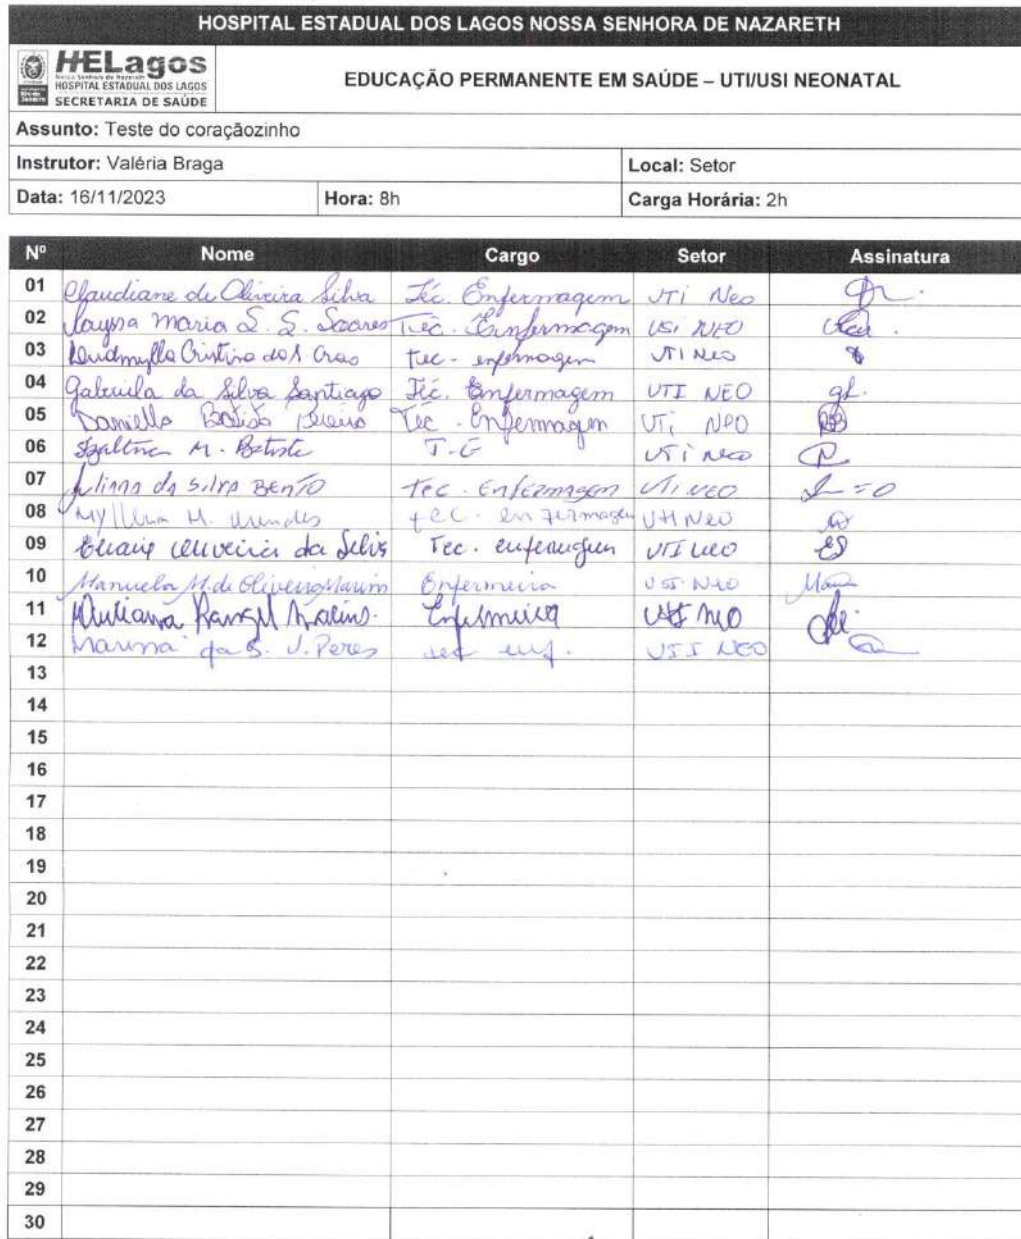 HOSPITAL ESTADUAL DOS LAGOS NOSSA SENHORA DE NAZARETH
HELagos
Nossa Senhora de Nazareth
HOSPITAL ESTADUAL DOS LAGOS
SECRETARIA DE SAÚDE
EDUCAÇÃO PERMANENTE EM SAÚDE – UTI/USI NEONATAL
Assunto: Teste do coraçãozinho
Instrutor: Valéria Braga Local: Setor
Data: 16/11/2023 Hora: 8h Carga Horária: 2h
Nº Nome Cargo Setor Assinatura
01 Claudiane de Oliveira Silva Téc. Enfermagem UTI Neo
02 Maria S. S. Soares Téc. Enfermagem USI NEO
03 Cristina Tec - enfermagem UTI Neo
04 Gabriela da Silva Santiago Téc. Enfermagem UTI NEO gS.
05 Daniella Batista Tec - Enfermagem UTi NEO
06 M. Batista T.E UTI Neo
07 Juliana da Silva BENTO Tec. Enfermagem UTI NEO
08 M. Mendes tec. enfermagem UTI Neo
09 da Silva Tec. enfermagem UTI neo ES
10 Manuela M. de Oliveira Marim Enfermeira USI Neo
11 Rangel Enfermeira NEO
12 Marina da S. V. Peres enf. UTI NEO
13
14
15
16
17
18
19
20
21
22
23
24
25
26
27
28
29
30